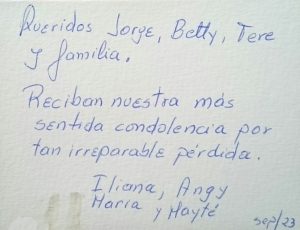 Queridos Jorge, Betty, Tere
y familia.
Reciban nuestra más
sentida condolencia por
tan irreparable pérdida.
Iliana, Angy
María y Mayté
sep/23